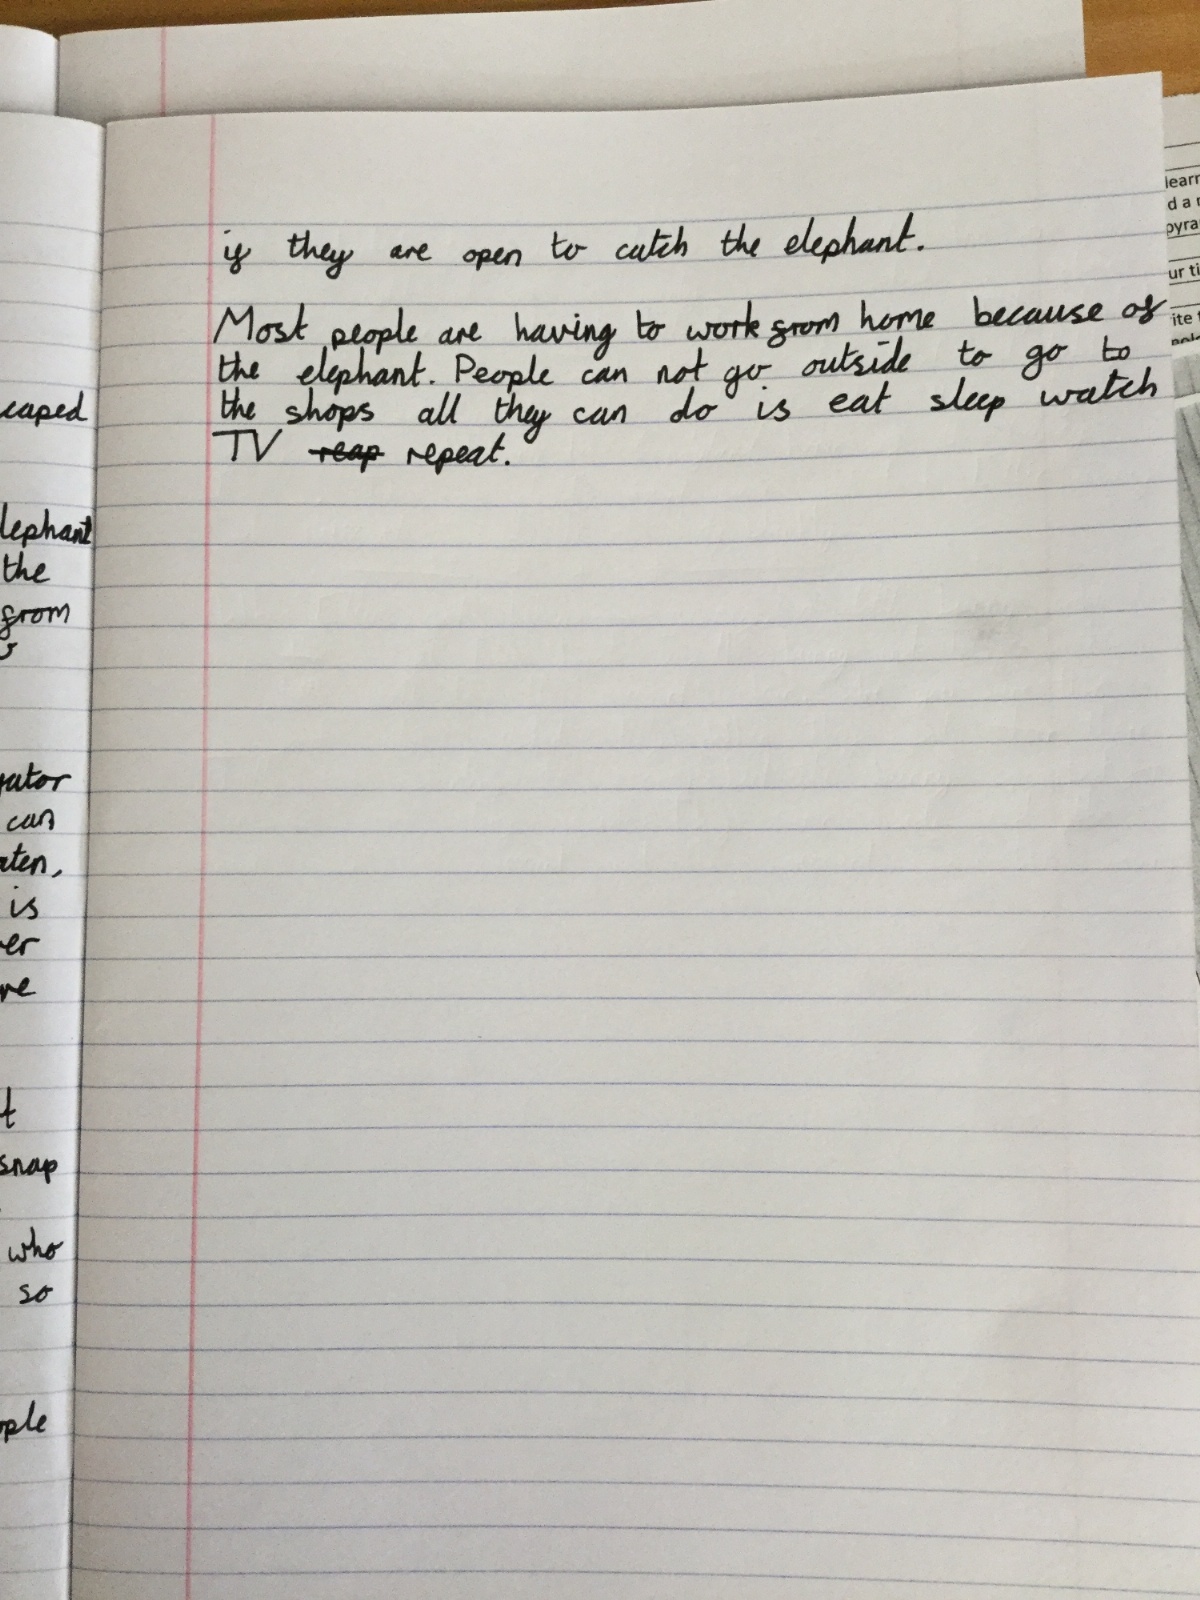 if they are open to catch the elephant.
Most people are having to work from home because of
the elephant. People can not go outside to go to
the shops all they can do is eat sleep watch
TV reap repeat.
caped
lephant
the
from
s
gator
can
aten,
is
er
re
t
snap
who
so
ople
learn
d a
pyra
ur ti
ite